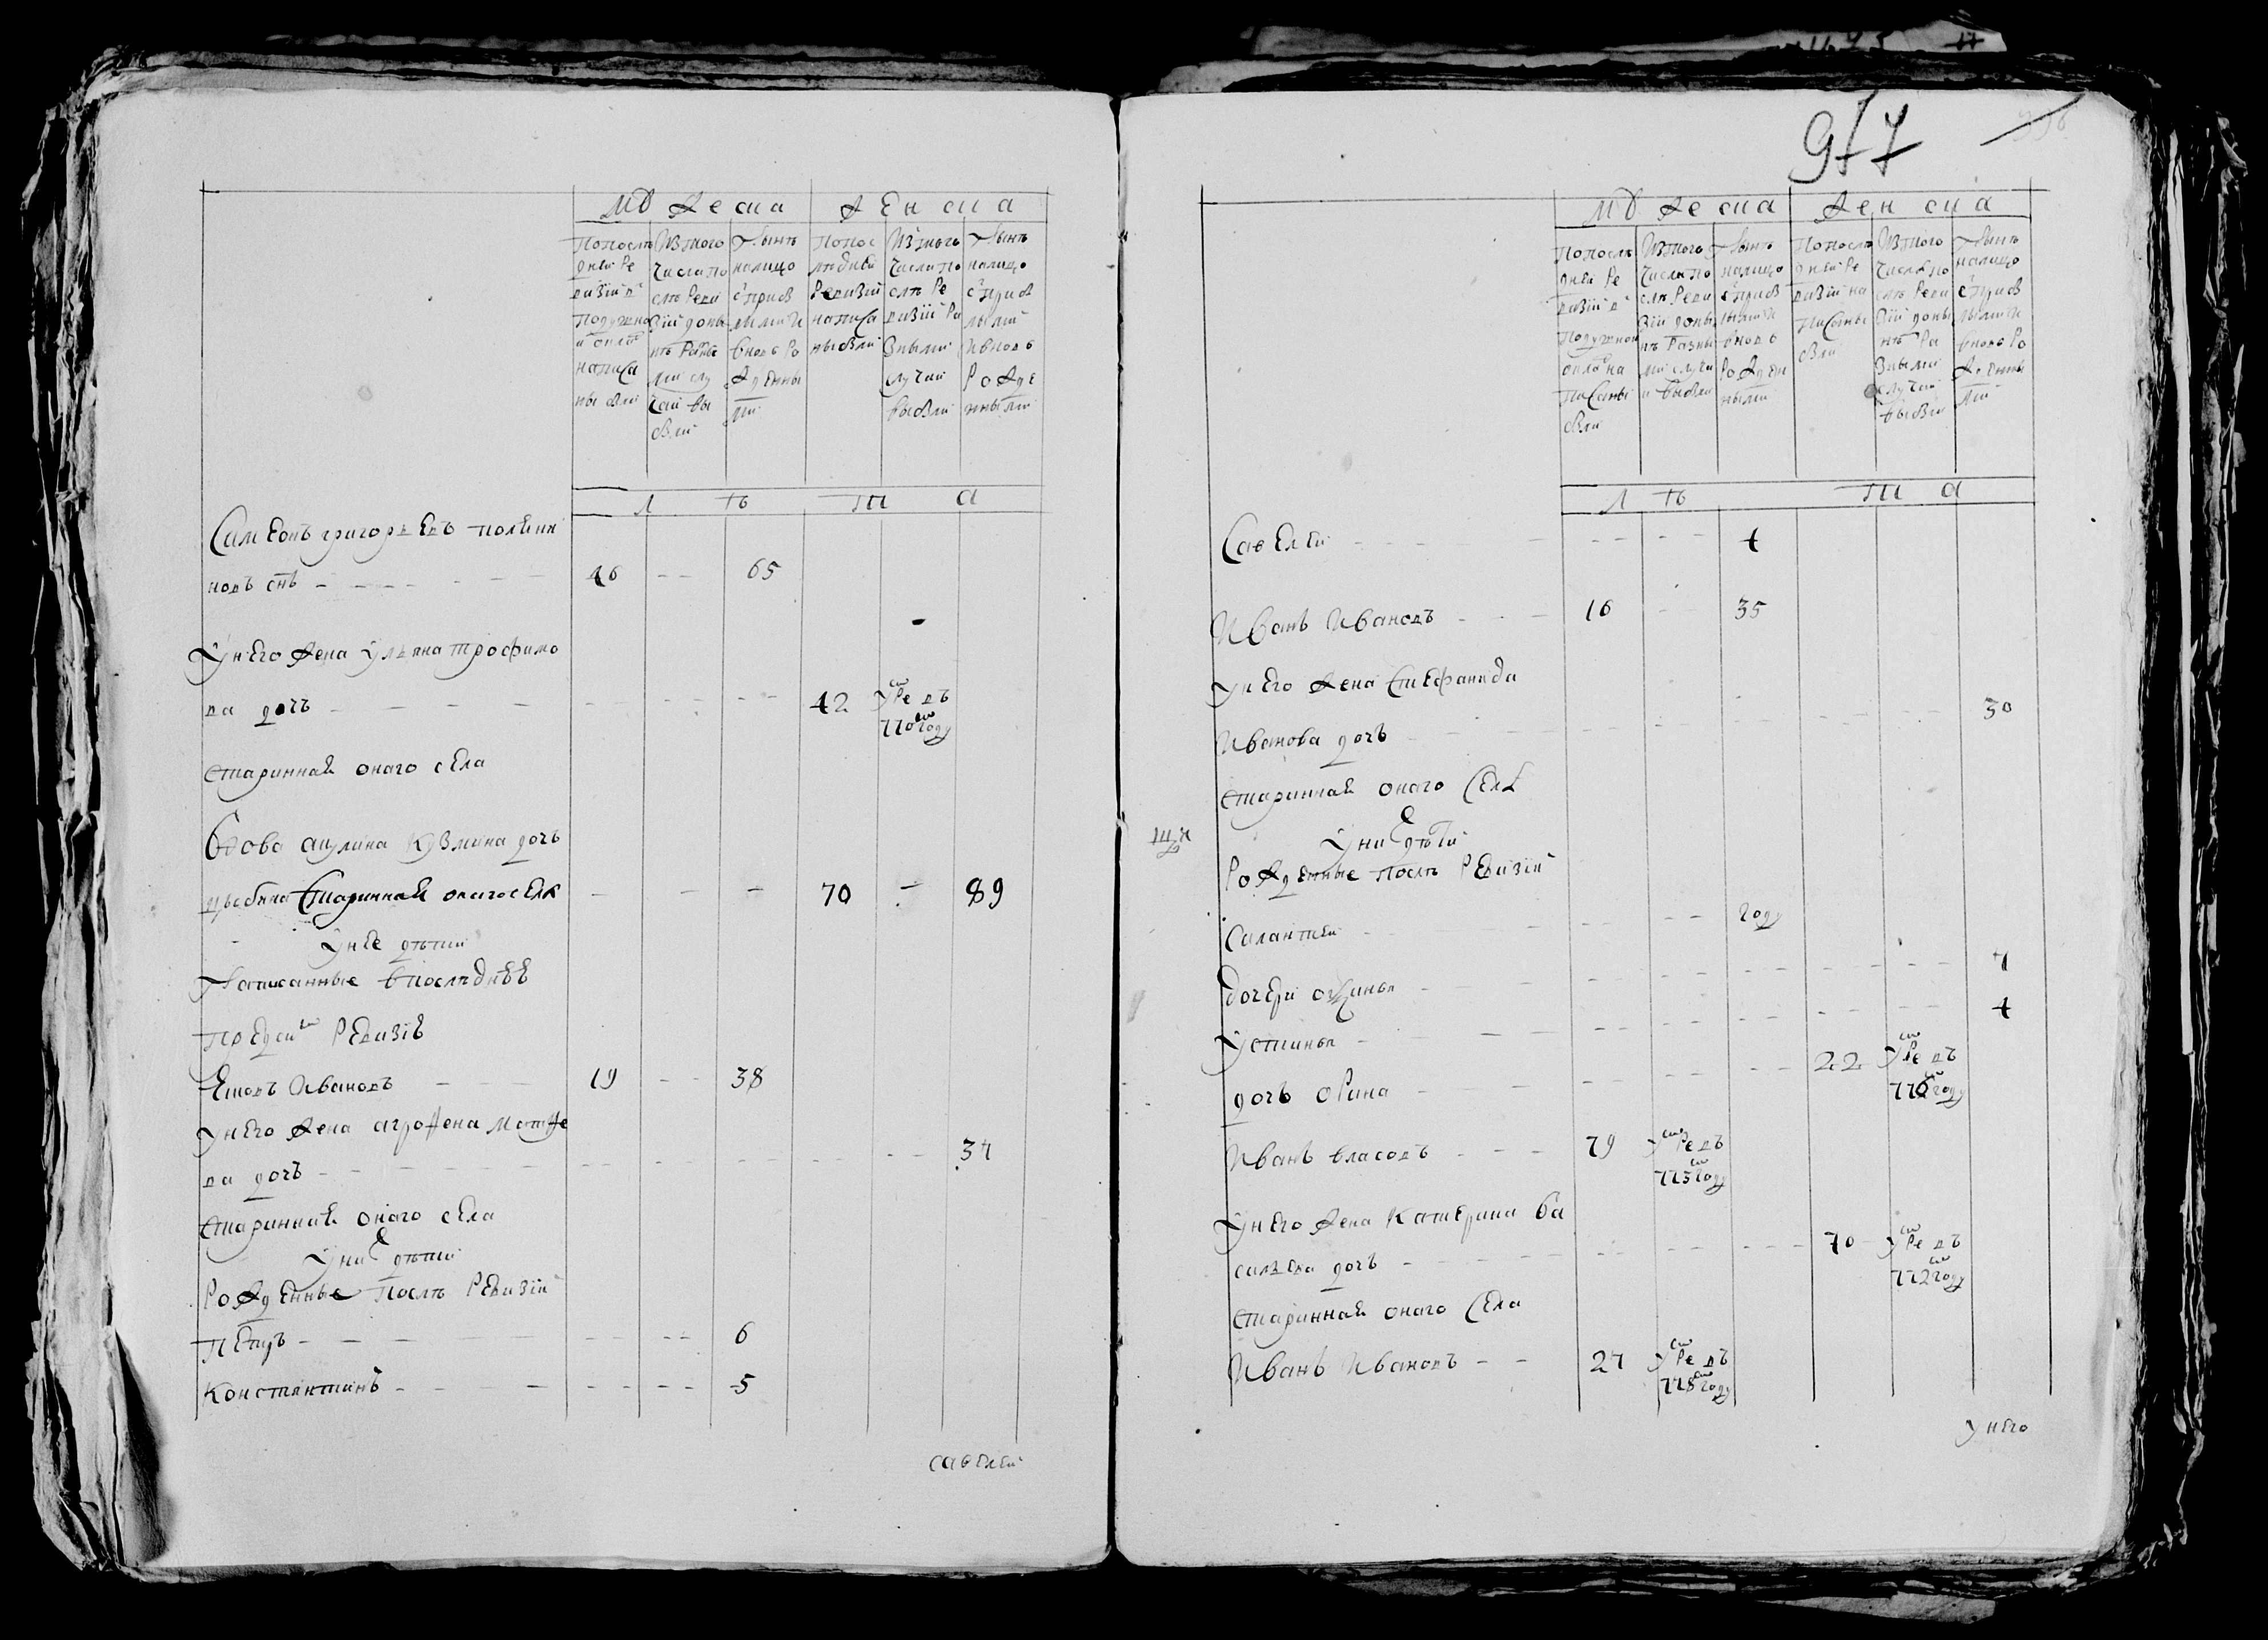 Мужеска Женска
По после дней ре визии в подушном окладе написа ны были
Из того числа по сле реви зии до ны не разны ми слу чаи вы были
Ныне налицо с прибы лыми и вновь ро жденны ми
По пос ледней ревизии написа ны были
Из того числа по сле ре визии ра зными случаи выбыли
Ныне налицо с прибы лыми и вновь рожде нными
Л ѣ т а
Симеонъ григорьевъ полени
новъ снъ 46 65
У него жена ульяна трофимо
ва дочь 42 умре въ
770м году
старинная оного села
Вдова акулина кузмина дочь
старинная оного села 70 89
у нее дети
Написанные в последнее
пред сим ревизие
Иванов 19 38
у него жена агрофена матфе
ва дочь 34
старинная оного села
у них дети
Рожденные после ревизии
Петръ 6
Константинъ 5
савелей
977
Мужеска Женска
По после дней ре визии в подушном окладе на писаны были
Из того числа по сле реви зии до ны не разны ми случаи выбыли
Ныне налицо с прибы лыми и вновь рожден ными
По после дней ре визии на писаны были
Из того числа по сле реви зии до ны не ра зными случаи выбыли
Ныне налицо с прибы лыми и вновь ро жденны ми
Л ѣ т а
Савелей 4
Иванъ Ивановъ 16 35
у него жена Стефанида
Иванова дочь 30
старинная оного села
у них дети
Рожденные после ревизии
Силантей году
дочери 7
Устинья 4
дочь орина 22 умре въ
776м году
Иванъ власовъ 79 умре въ
775 году
у него жена Катерина ва
сильева дочь 70 умре въ
772 году
старинная оного села
Иванъ Ивановъ 27 умре въ
778 году
у него